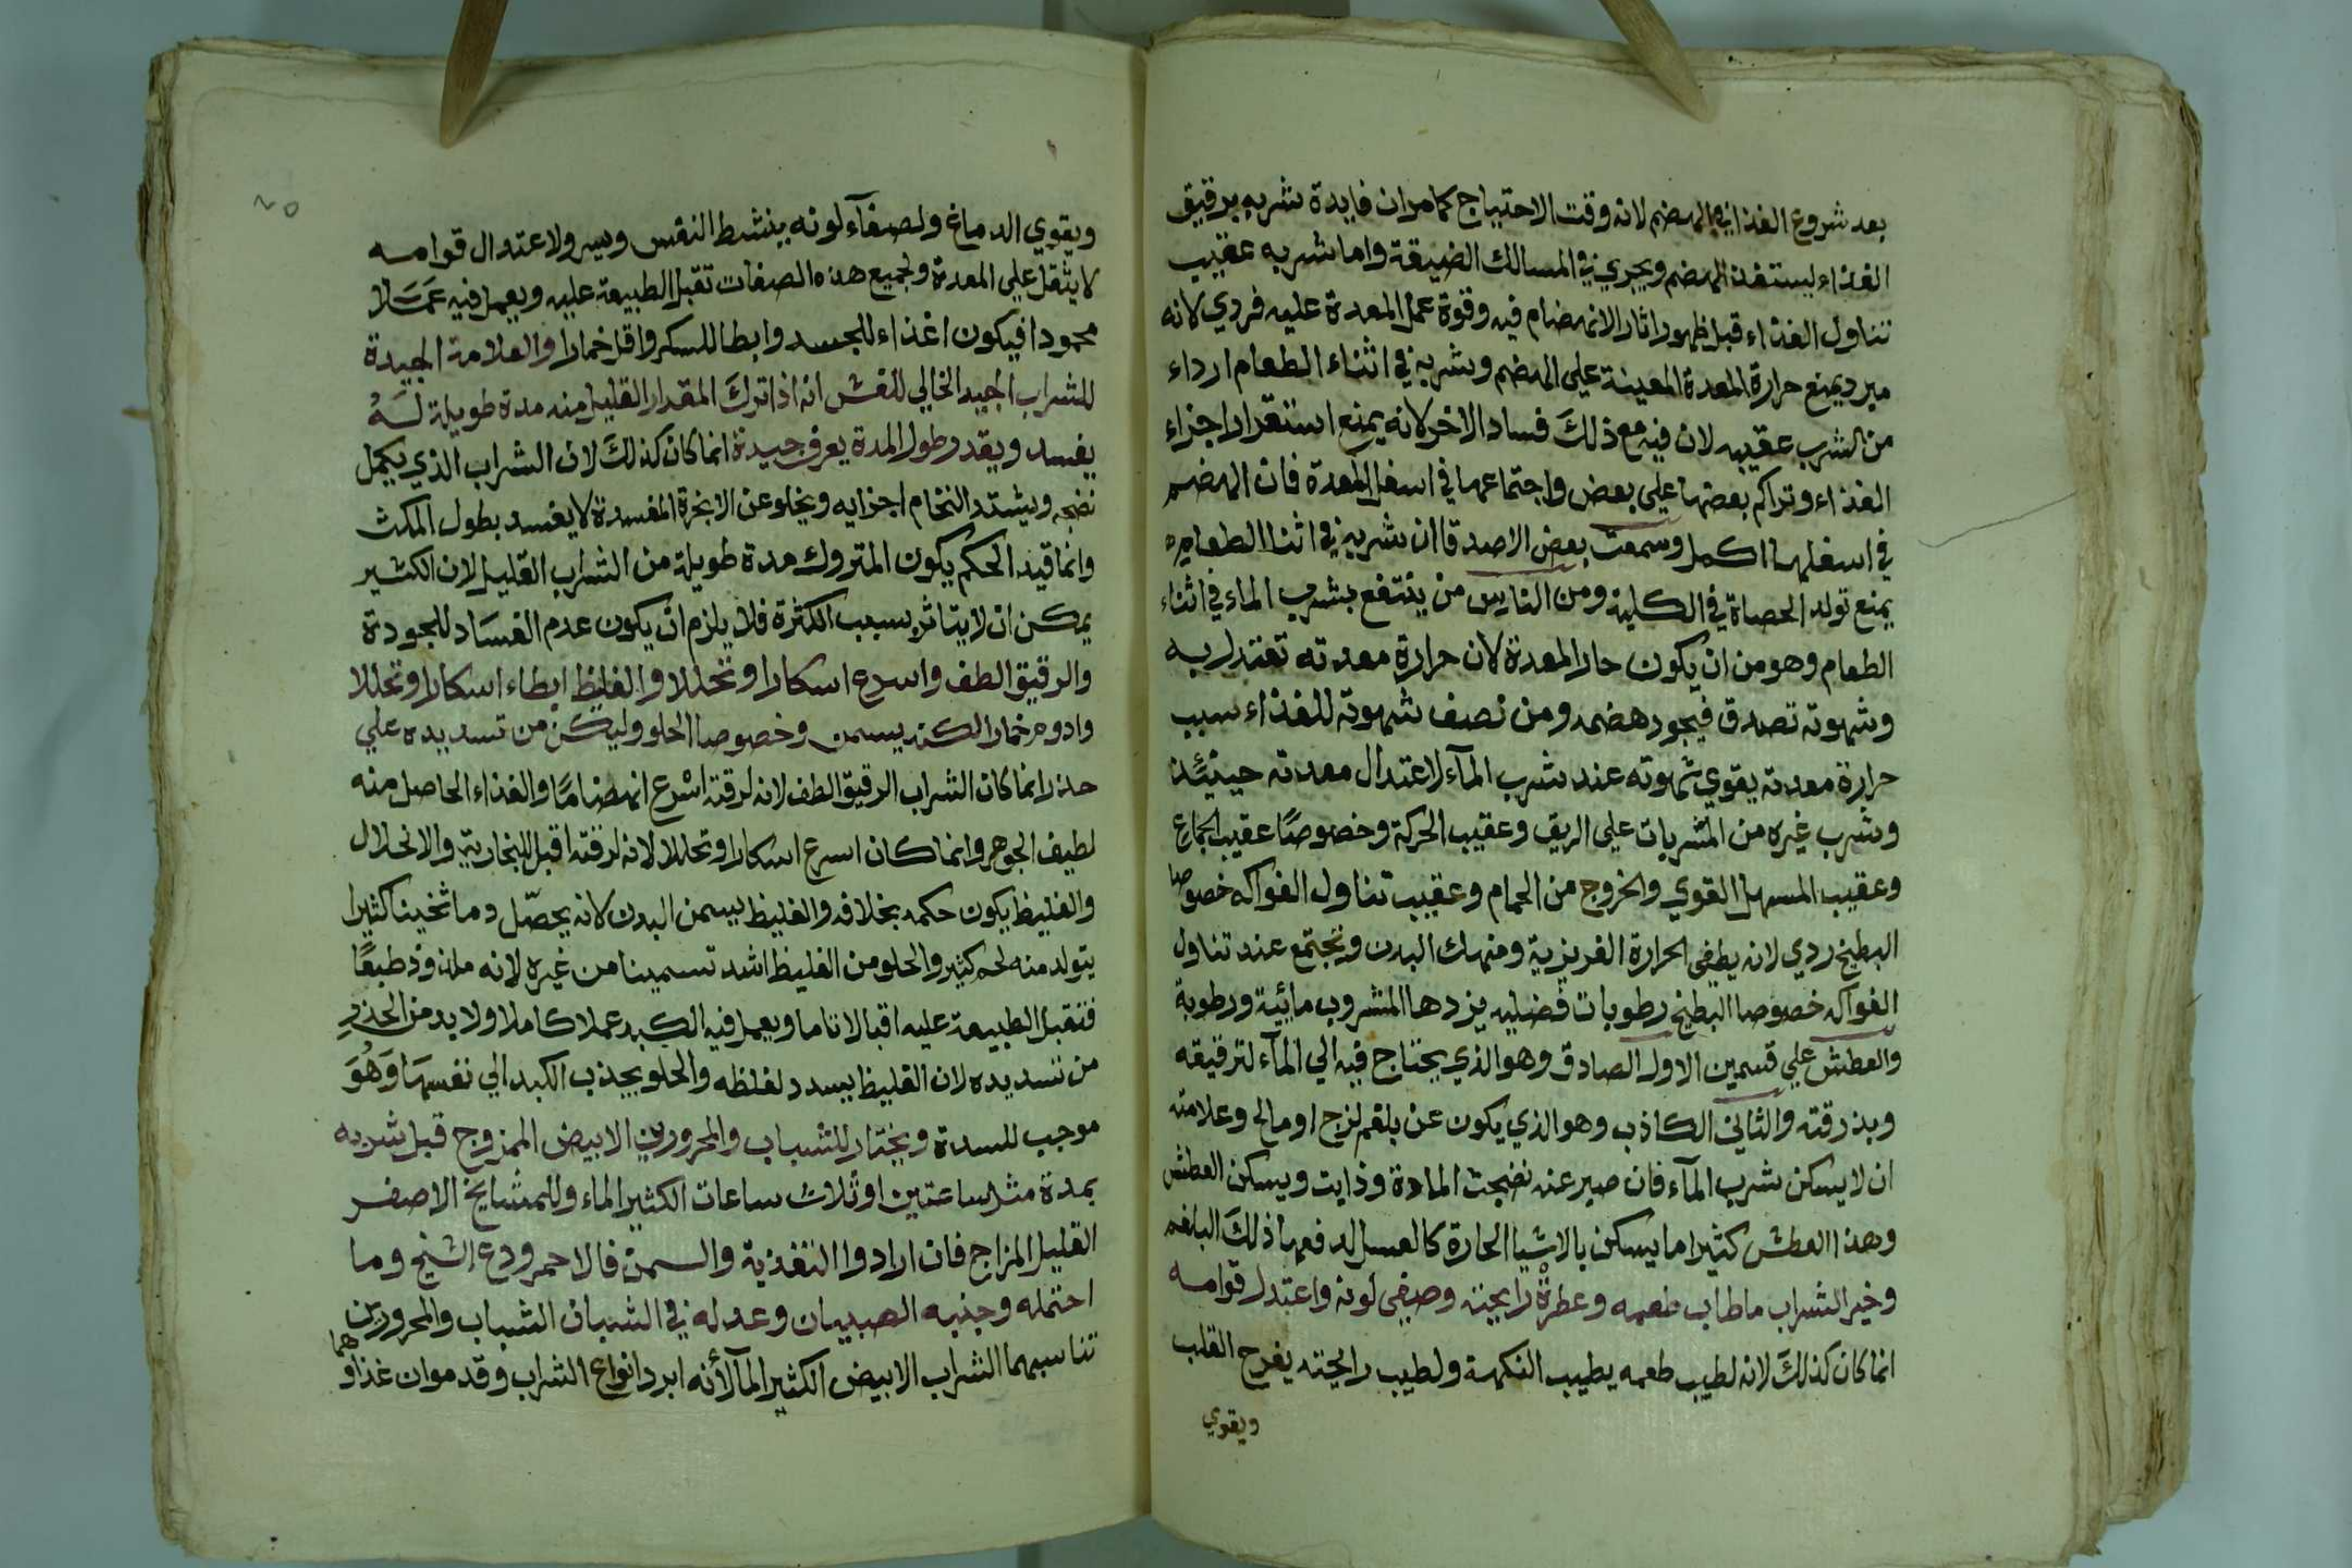 بعد شروع الغذا في الهضم لانه وقت الاحتياج كما مر ان فايدة شربه يرقيق
الغذاء ليستنفذ الهضم ويجري في المسالك الضيقة واما شربه عقيب
تناول الغذاء قبل ظهور اثار الانهضام فيه وقوة عمل المعدة عليه فردي لانه
مبرد يمنع حرارة المعدة المعينة على الهضم وشربه في اثناء الطعام ارداء
من الشرب عقيبه لان فيه مع ذلك فساد الاخر لانه يمنع استقرار اجزاء
الغذاء وتراكم بعضها على بعض واجتماعها في اسفل المعدة فان الهضم
في اسفلها اكمل وسمعت بعض الاصدقا ان شربه في اثنا الطعام
يمنع تولد الحصاة في الكلية ومن الناس من ينتفع بشرب الماء في اثناء
الطعام وهو من ان يكون حار المعدة لان حرارة معدته تعتدل به
وشهوته تصدق فيجود هضمه ومن نصف شهوته للغذاء سبب
حرارة معدته يقوي شهوته عند شرب المآء لاعتدال معدته حينئذ
وشرب غيره من المشربات علي الريق وعقيب الحركة وخصوصًا عقيب الجماع
وعقيب المسهل القوي والخروج من الحمام وعقيب تناول الفواكه خصوصا
البطيخ ردي لانه يطفي الحرارة الغريزية ومنهك البدن وتجتمع عند تناول
الفواكه خصوصا البطيخ رطوبات فضليه يزدها المشروب مائية ورطوبة
والعطش علي قسمين الاول الصادق وهو الذي يحتاج فيه الي المآء لترقيقه
وبذرقته والثاني الكاذب وهو الذي يكون عن بلغم لزج او مالح وعلامته
ان لا يسكن شرب المآء فان صبر عنه نضجت المادة وذابت ويسكن العطش
وهذا العطش كثيرا ما يسكن بالاشيا الحارة كالعسل لدفعها ذلك البلغم
وخير الشراب ما طاب طعمه وعطرة رايحته وصفي لونه واعتدل قوامه
انما كان كذلك لانه لطيب طعمه يطيب النكهة ولطيب رايحته يفرح القلب
ويقوي
٢٥
ويقوي الدماغ ولصفآء لونه ينشط النفس ويسر ولاعتدال قوامه
لا يثقل علي المعدة ولجميع هذه الصفات تقبل الطبيعة عليه ويعمل فيه عملا
محمودا فيكون اغذاء للجسد وابطا للسكر واقل خمارا والعلامة الجيدة
للشراب الجيد الخالي للغش انه اذا ترك المقدار القليل منه مدة طويلة لم
يفسد وبقدر طول المدة يعرف جيدة انما كان كذلك لان الشراب الذي يكمل
نضجه ويشتد التخام اجزايه ويخلو عن الابخرة المفسدة لا يفسد بطول المكث
وانما قيد الحكم بكون المتروك مدة طويلة من الشراب القليل لان الكثير
يمكن ان لا يتاثر بسبب الكثرة فلا يلزم ان يكون عدم الفساد للجودة
والرقيق الطف واسرع اسكارا وتحللا والغليظ ابطاء اسكارا وتحللا
وادوم خمارا لكنه يسمن وخصوصا الحلو وليكن من تسديده علي
حذر انما كان الشراب الرقيق الطف لانه لرقته اسرع انهضامًا والغذاء الحاصل منه
لطيف الجوهر وانما كان اسرع اسكارا وتحللا لانه لرقته اقبل للبخارية والانحلال
والغليظ يكون حكمه بخلافه والغليظ يسمن البدن لانه يحصّل دما ثخينا كثيرا
يتولد منه لحم كثير والحلو من الغليظ اشد تسمينا من غيره لانه ملذوذ طبعًا
فتقبل الطبيعة عليه اقبالا تاما ويعمل فيه الكبد عملا كاملا ولا بد من الحذر
من تسديده لان الغليظ يسدد لغلظه والحلو يجذب الكبد الي نفسها وَهُوَ
موجب للسدة ويختار للشباب والمحرورين الابيض الممزوج قبل شربه
بمدة مثل ساعتين او ثلاث ساعات الكثير الماء وللمشايخ الاصفر
القليل المزاج فان ارادوا التغذية والسمن فالاحمر ودع الشيخ وما
احتمله وجنبه الصبيان وعدله في الشبان الشباب والمحرورين
تناسبهما الشراب الابيض الكثير المآ لأنه ابرد انواع الشراب وقد مو ان غذاوهما